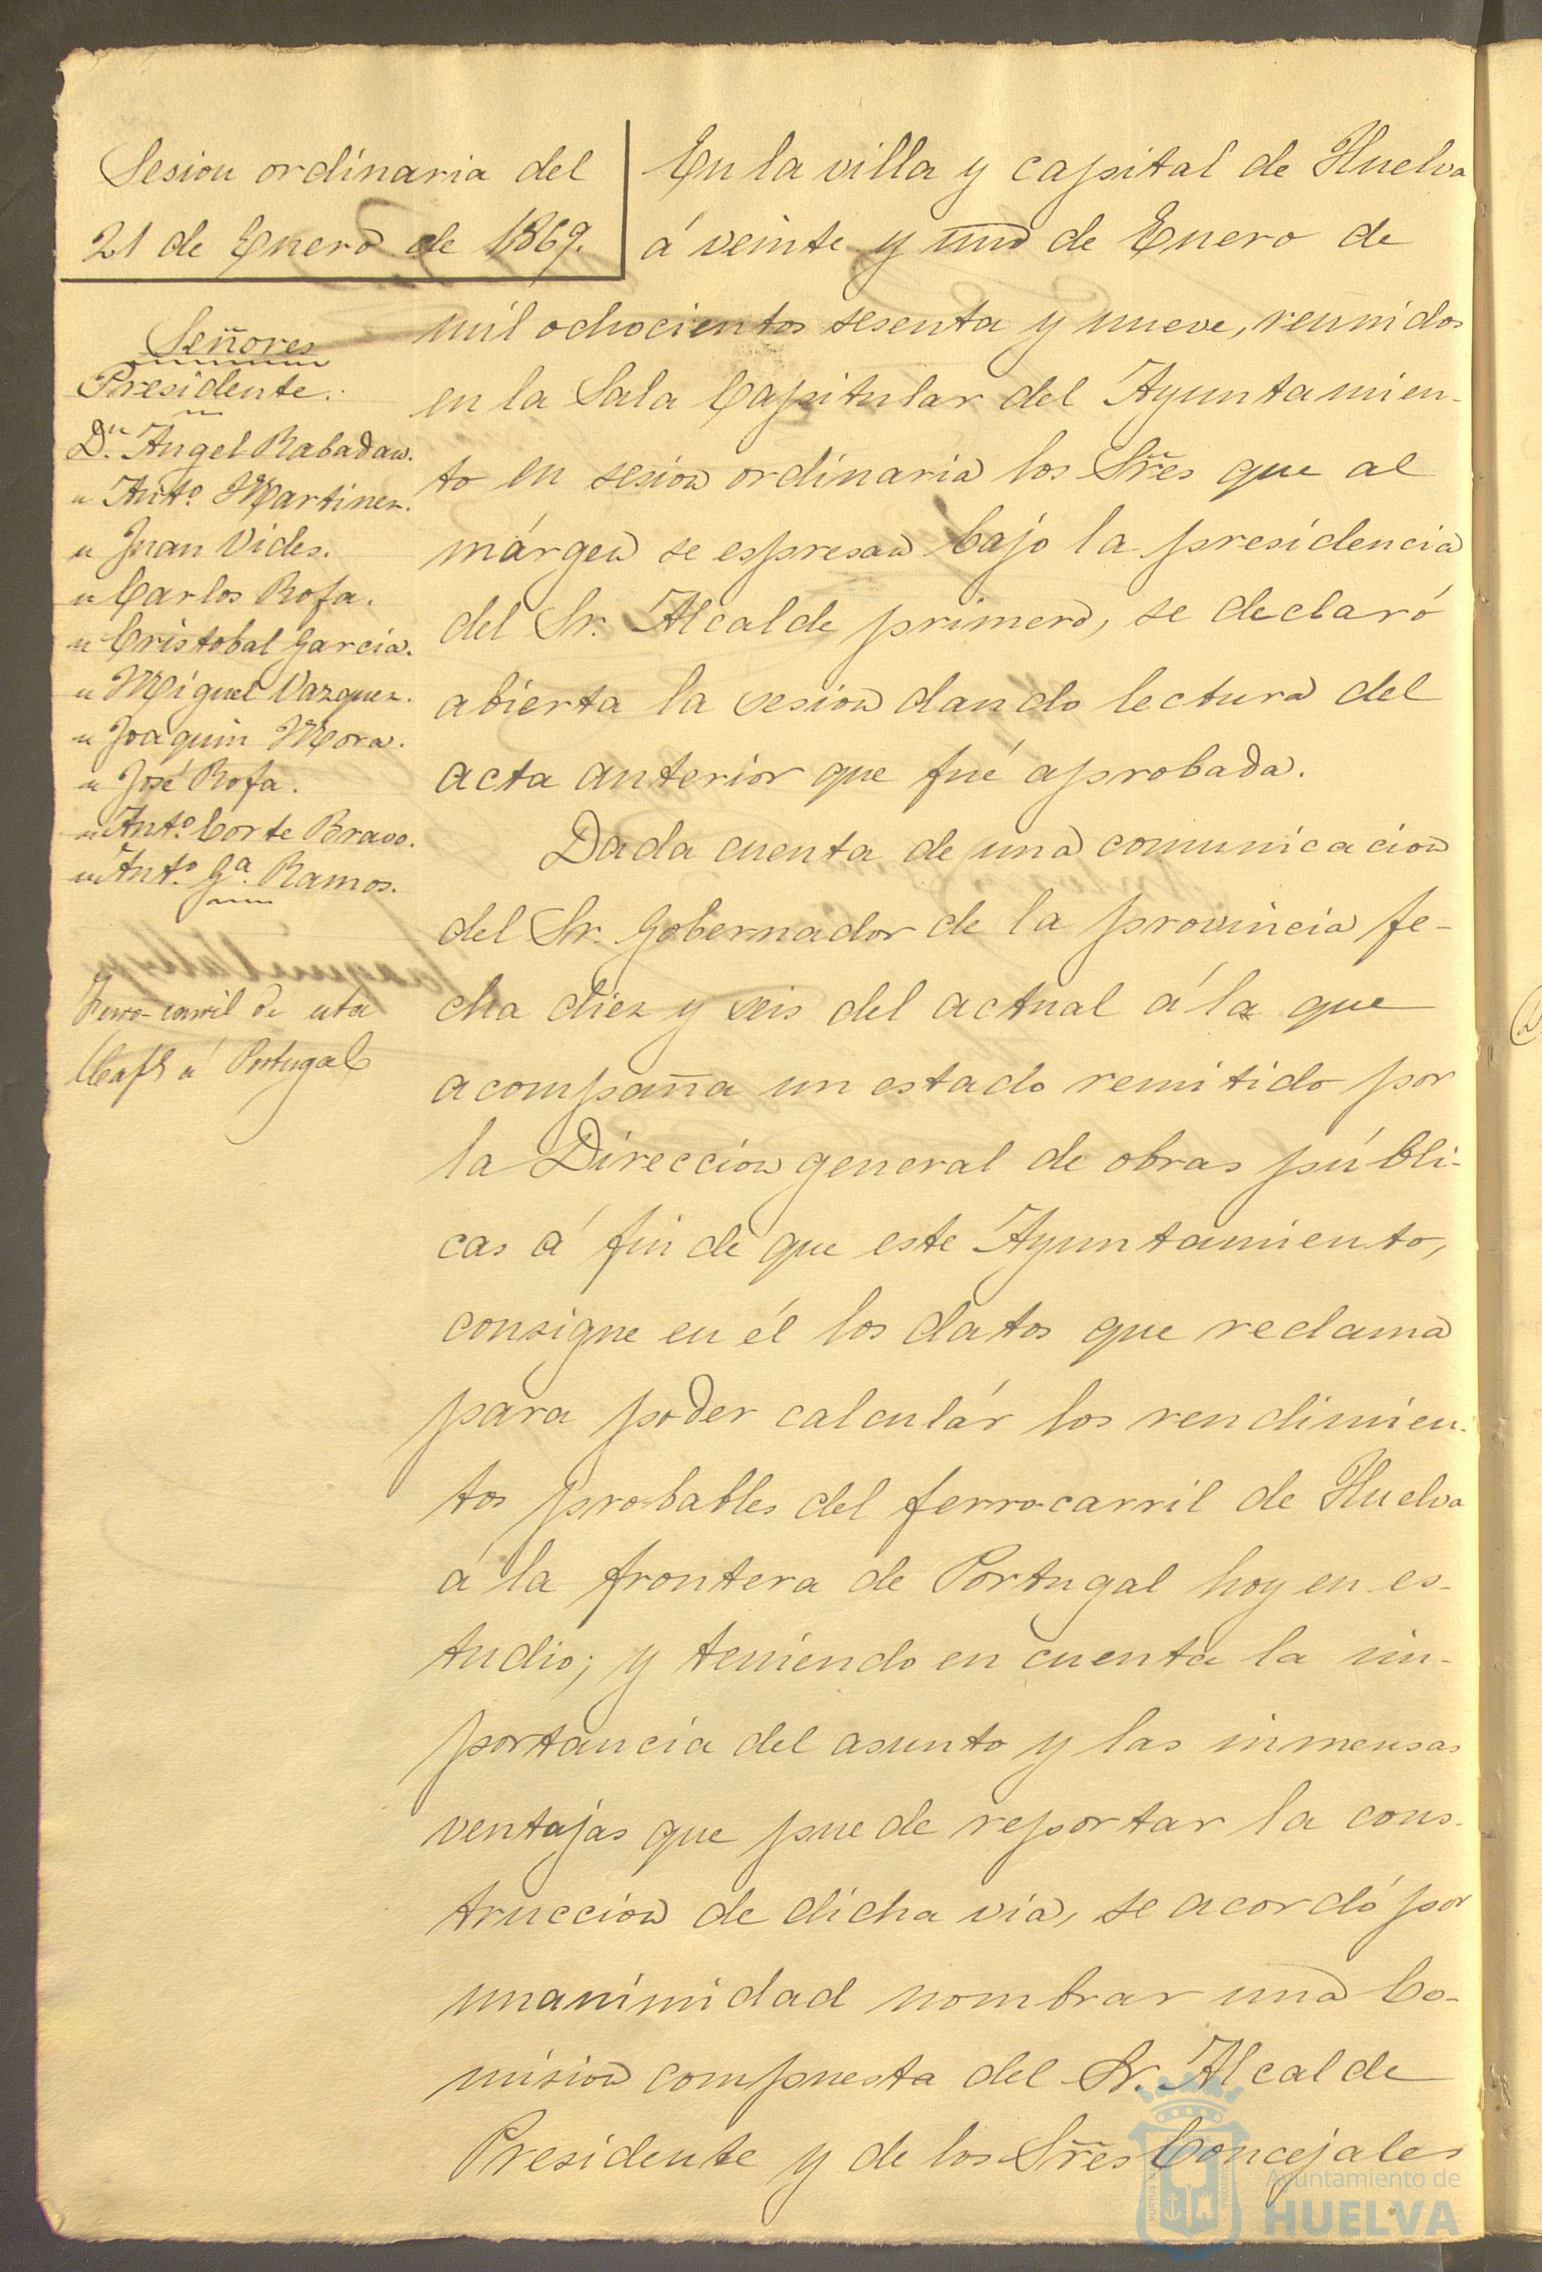 Sesion ordinaria del
21 de Enero de 1869.
Señores
Presidente.
Dn. Angel Rabadan.
" Anto. Martinez.
" Juan Vides.
" Carlos Rofa.
" Cristobal Garcia.
" Miguel Vazquez.
" Joaquin Mora.
" José Rofa.
" Anto. Corte Bravo.
" Anto. Ga. Ramos.
Ferro-carril de esta
Capl a' Portugal
En la villa y capital de Huelva
á veinte y uno de Enero de
mil ochocientos sesenta y nueve, reunidos
en la Sala Capitular del Ayuntamien-
to en sesion ordinaria los Sres que al
márgen se espresan bajo la presidencia
del Sr. Alcalde primero, se declaró
abierta la sesion dando lectura del
acta anterior que fué aprobada.
Dada cuenta de una comunicacion
del Sr. Gobernador de la provincia fe-
cha diez y seis del actual á la que
acompaña un estado remitido por
la Direccion general de obras públi-
cas á fin de que este Ayuntamiento,
consigne en él los datos que reclama
para poder calculár los rendimien-
tos probables del ferro-carril de Huelva
á la frontera de Portugal hoy en es-
tudio; y teniendo en cuenta la im-
portancia del asunto y las inmensas
ventajas que puede reportar la cons-
truccion de dicha via, se acordó por
unanimidad nombrar una Co-
mision compuesta del Sr. Alcalde
Presidente y de los Sres Concejales
Ayuntamiento de
HUELVA